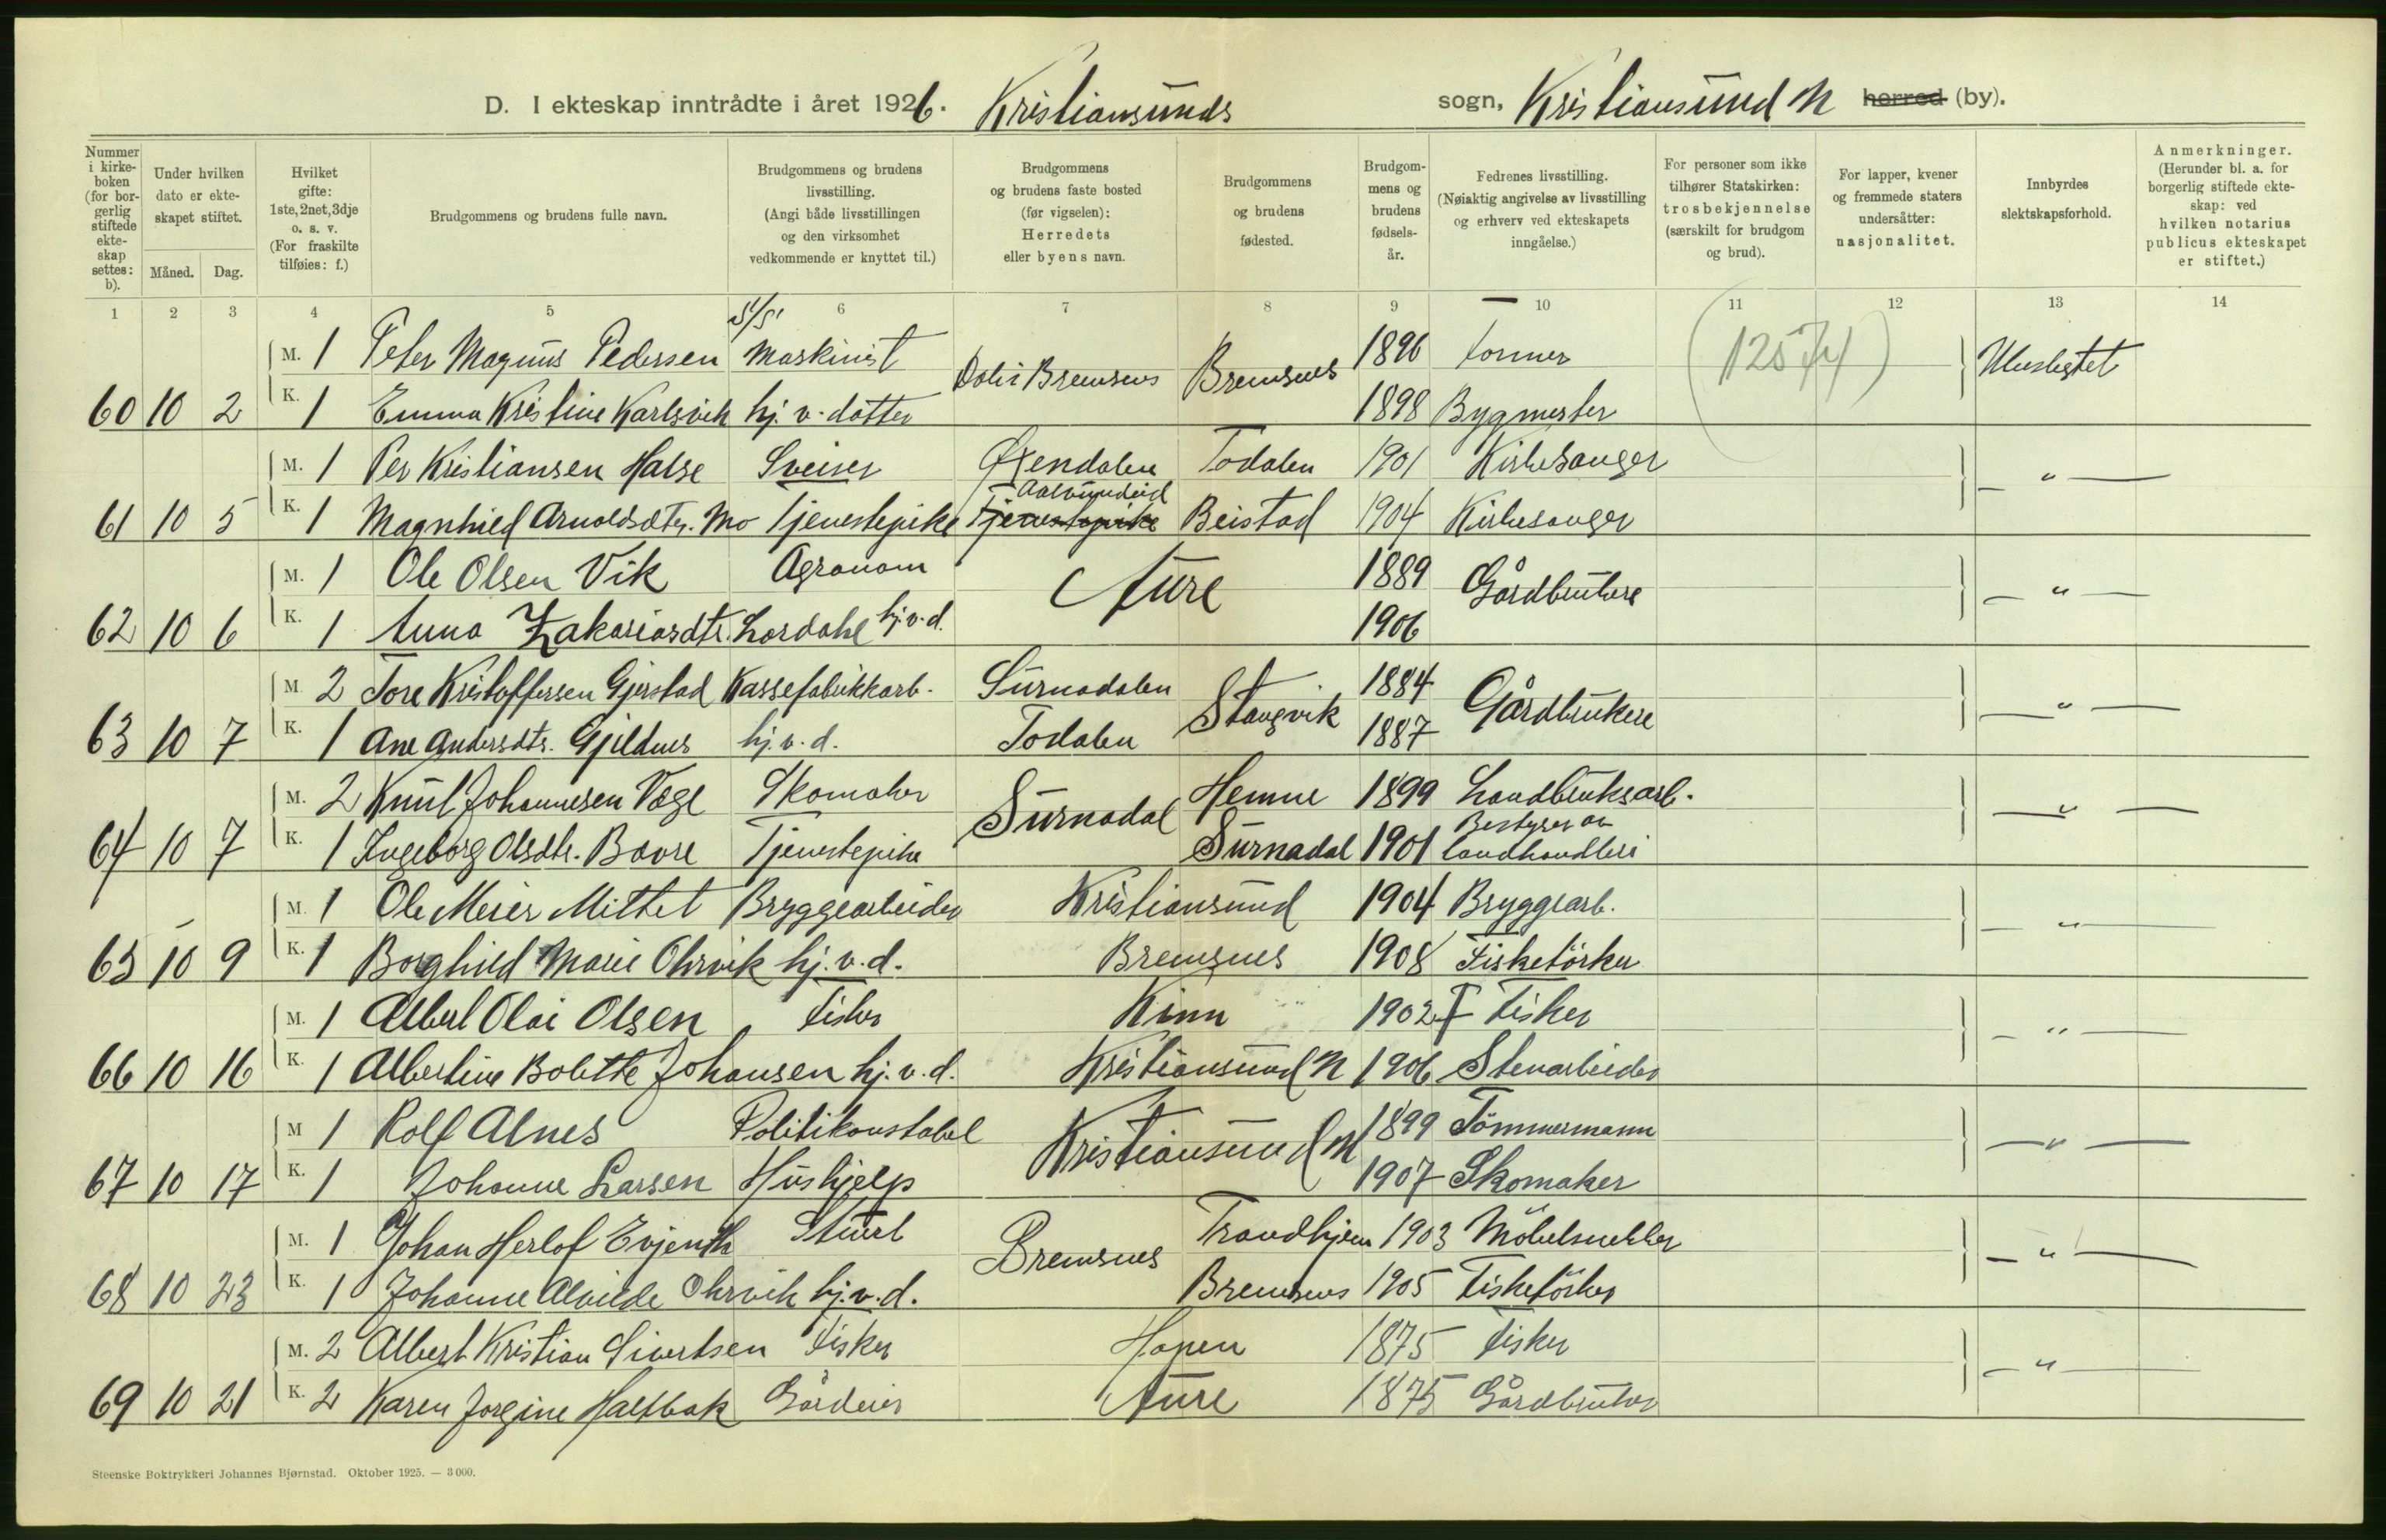 D. I ekteskap inntrådte i året 1926. Kristiansunds sogn, Kristiansund N herred (by).
Nummer i kirkeboken (for borgerlig stiftede ekteskap settes: b).
Under hvilken dato er ekteskapet stiftet.
Måned. Dag.
Hvilket gifte: 1ste, 2net, 3dje o. s. v. (For fraskilte tilføies: f.)
Brudgommens og brudens fulle navn.
Brudgommens og brudens livsstilling. (Angi både livsstillingen og den virksomhet vedkommende er knyttet til.)
Brudgommens og brudens faste bosted (før vigselen): Herredets eller byens navn.
Brudgommens og brudens fødested.
Brudgommens og brudens fødselsår.
Fedrenes livsstilling. (Nøiaktig angivelse av livsstilling og erhverv ved ekteskapets inngåelse.)
For personer som ikke tilhører Statskirken: trosbekjennelse (særskilt for brudgom og brud).
For lapper, kvener og fremmede staters undersåtter: nasjonalitet.
Innbyrdes slektskapsforhold.
Anmerkninger. (Herunder bl. a. for borgerlig stiftede ekteskap: ved hvilken notarius publicus ekteskapet er stiftet.)
1 2 3 4 5 6 7 8 9 10 11 12 13 14
M. 1 Peter Magnus Pedersen Maskinist Bremsnes Bremsnes 1896 Former Ubeslegtet
60 10 2 K. 1 Emma Kristine Karlsvik hj. v. datter 1898 Bygmester
M. 1 Per Kristiansen Halse Sveiser Øxendalen Todalen 1901 Kirkesanger — " —
Aalvundeid
61 10 5 K. 1 Magnhild Arnoldsdtr. Mo Tjenestepike Tjenestepike Beistad 1904 Kirkesanger
M. 1 Ole Olsen Vik Agronom Aure 1889 Gårdbrukere — " —
62 10 6 K. 1 Anna Zakariasdtr. Lordahl hj. v. d. 1906
M. 2 Tore Kristoffersen Gjerstad Kassefabrikkarb. Surnadalen Stangvik 1884 Gårdbrukere — " —
63 10 7 K. 1 Ane Andersdtr. Gjeldnes hj. v. d. Todalen 1887
M. 2 Knut Johannesen Vage Skomaker Surnadal Hemne 1899 Landbruksarb. — " —
64 10 7 K. 1 Ingeborg Olsdtr. Bovre Tjenestepike Surnadal 1901 Bestyrer av landhandleri
M. 1 Ole Meier Mittet Bryggearbeider Kristiansund 1904 Bryggearb. — " —
65 10 9 K. 1 Borghild Marie Ohrvik hj. v. d. Bremsnes 1908 Fisketörker
M. 1 Albert Olai Olsen Fisker Kinn 1902 Fisker — " —
66 10 16 K. 1 Albertine Bolette Johansen hj. v. d. Kristiansund N 1906 Stenarbeider
M. 1 Rolf Alnes Politikonstabel Kristiansund N 1899 Tömmermann — " —
67 10 17 K. 1 Johanne Larsen Hushjelp 1907 Skomaker
M. 1 Johan Herlof Evjenth Stuert Bremsnes Trondhjem 1903 Möbelsnekker — " —
68 10 23 K. 1 Johanne Alvilde Ohrvik hj. v. d. Bremsnes 1905 Fisketörker
M. 2 Albert Kristian Sivertsen Fisker Hopen 1875 Fisker — " —
69 10 21 K. 2 Karen Jorgine Halsbak Gårdeier Aure 1875 Gårdbruker
Steenske Boktrykkeri Johannes Bjørnstad. Oktober 1925. — 3 000.